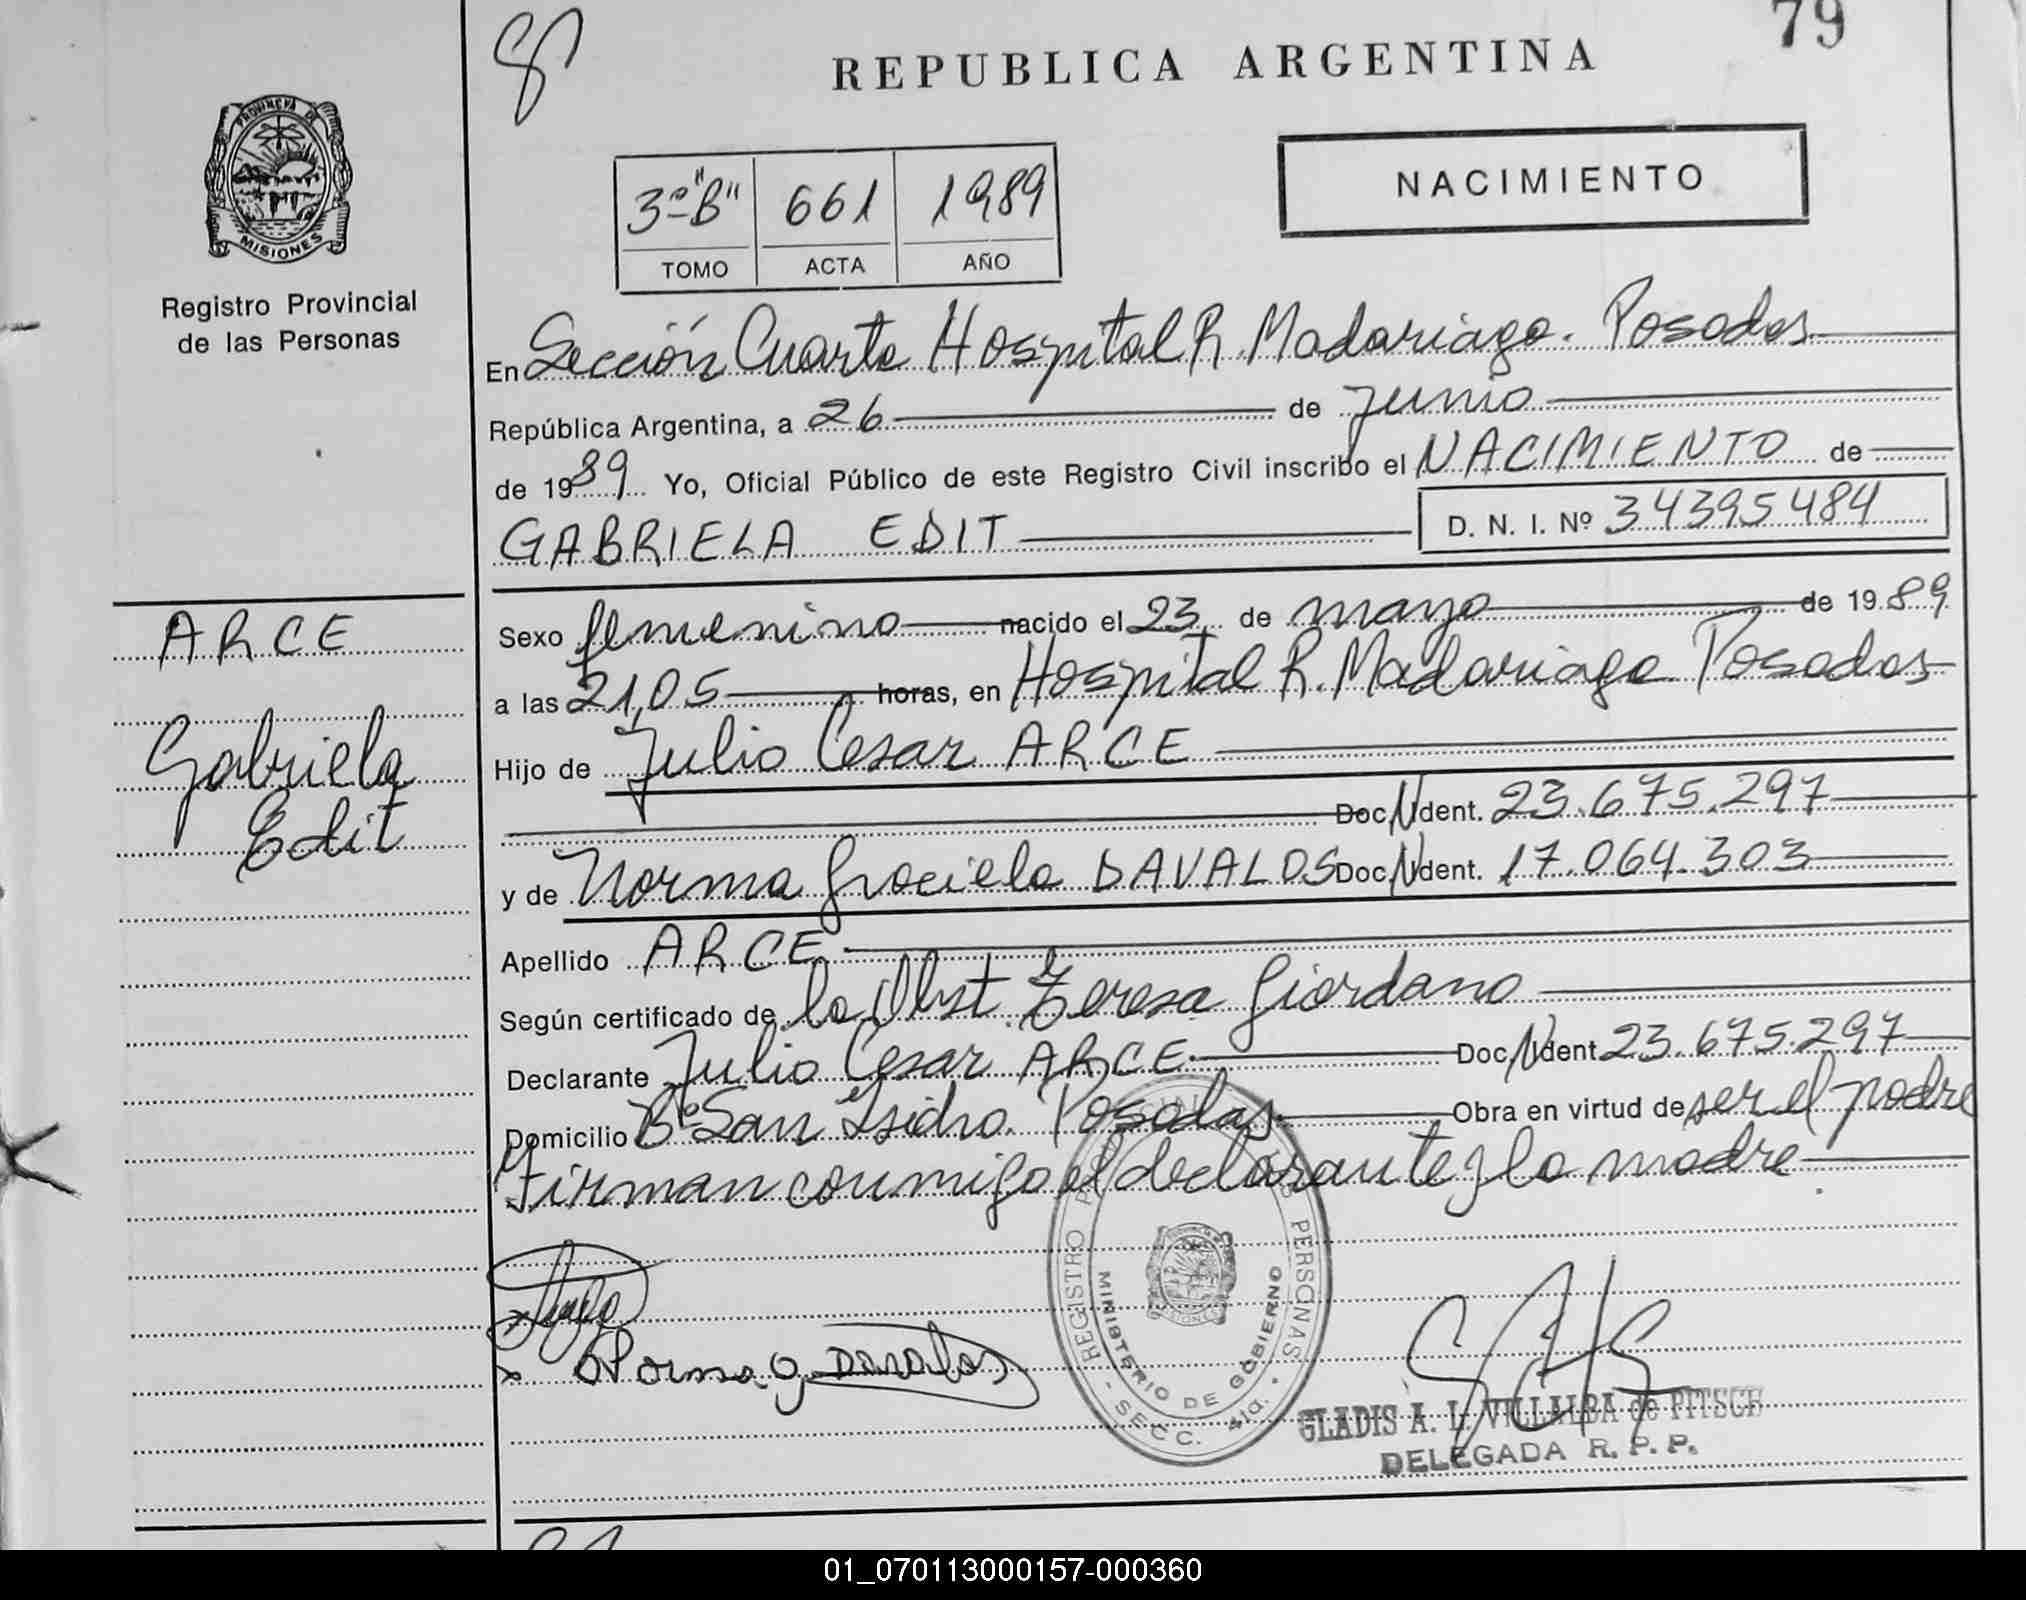 79
REPUBLICA ARGENTINA
PROVINCIA DE
MISIONES
Registro Provincial
de las Personas
NACIMIENTO
3º "B" 661 1989
TOMO ACTA AÑO
En Sección Cuarta Hospital R. Madariaga. Posadas
República Argentina, a 26 de Junio
de 1989 Yo, Oficial Público de este Registro Civil inscribo el NACIMIENTO de
GABRIELA EDIT D. N. I. Nº 34395484
ARCE
Gabriela
Edit
Sexo femenino nacido el 23 de mayo de 1989
a las 21,05 horas, en Hospital R. Madariaga Posadas
Hijo de Julio Cesar ARCE
Doc. Ident. 23.675.297
y de Norma Graciela DAVALOS Doc. Ident. 17.064.303
Apellido ARCE
Según certificado de la Obst. Teresa Giordano
Declarante Julio Cesar ARCE Doc. Ident 23.675.297
Domicilio Bº San Isidro. Posadas Obra en virtud de ser el padre
Firman conmigo el declarante y la madre
REGISTRO PROVINCIAL DE LAS PERSONAS
MINISTERIO DE GOBIERNO
- SECC. 4ta. -
x
x Norma G. Davalos
GLADIS A. L. VILLALBA de PITSCH
DELEGADA R. P. P.
01_070113000157-000360